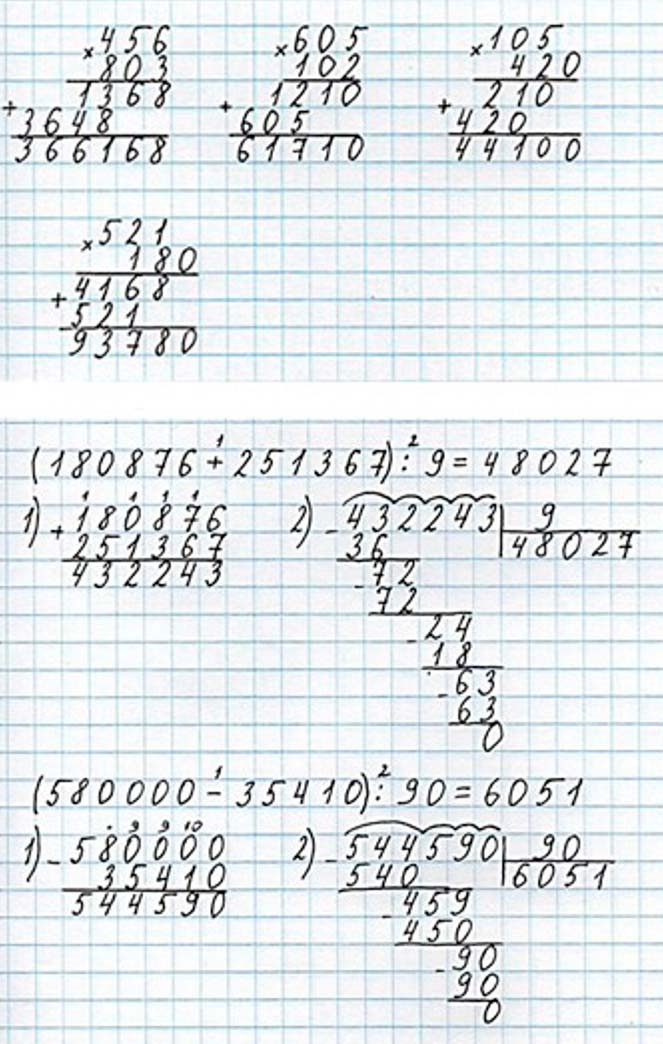 × 456
803
1368
+ 3648
366168
× 605
102
1210
+ 605
61710
× 105
420
210
+ 420
44100
× 521
180
4168
+ 521
93780
(180876 + 251367) : 9 = 48027
1 2
1) + 180876
1 1 1 1
251367
432243
2) - 432243 | 9
36 | 48027
- 72
72
- 24
18
- 63
63
0
(580000 - 35410) : 90 = 6051
1 2
1) - 580000
. 9 9 10
35410
544590
2) - 544590 | 90
540 | 6051
- 459
450
- 90
90
0